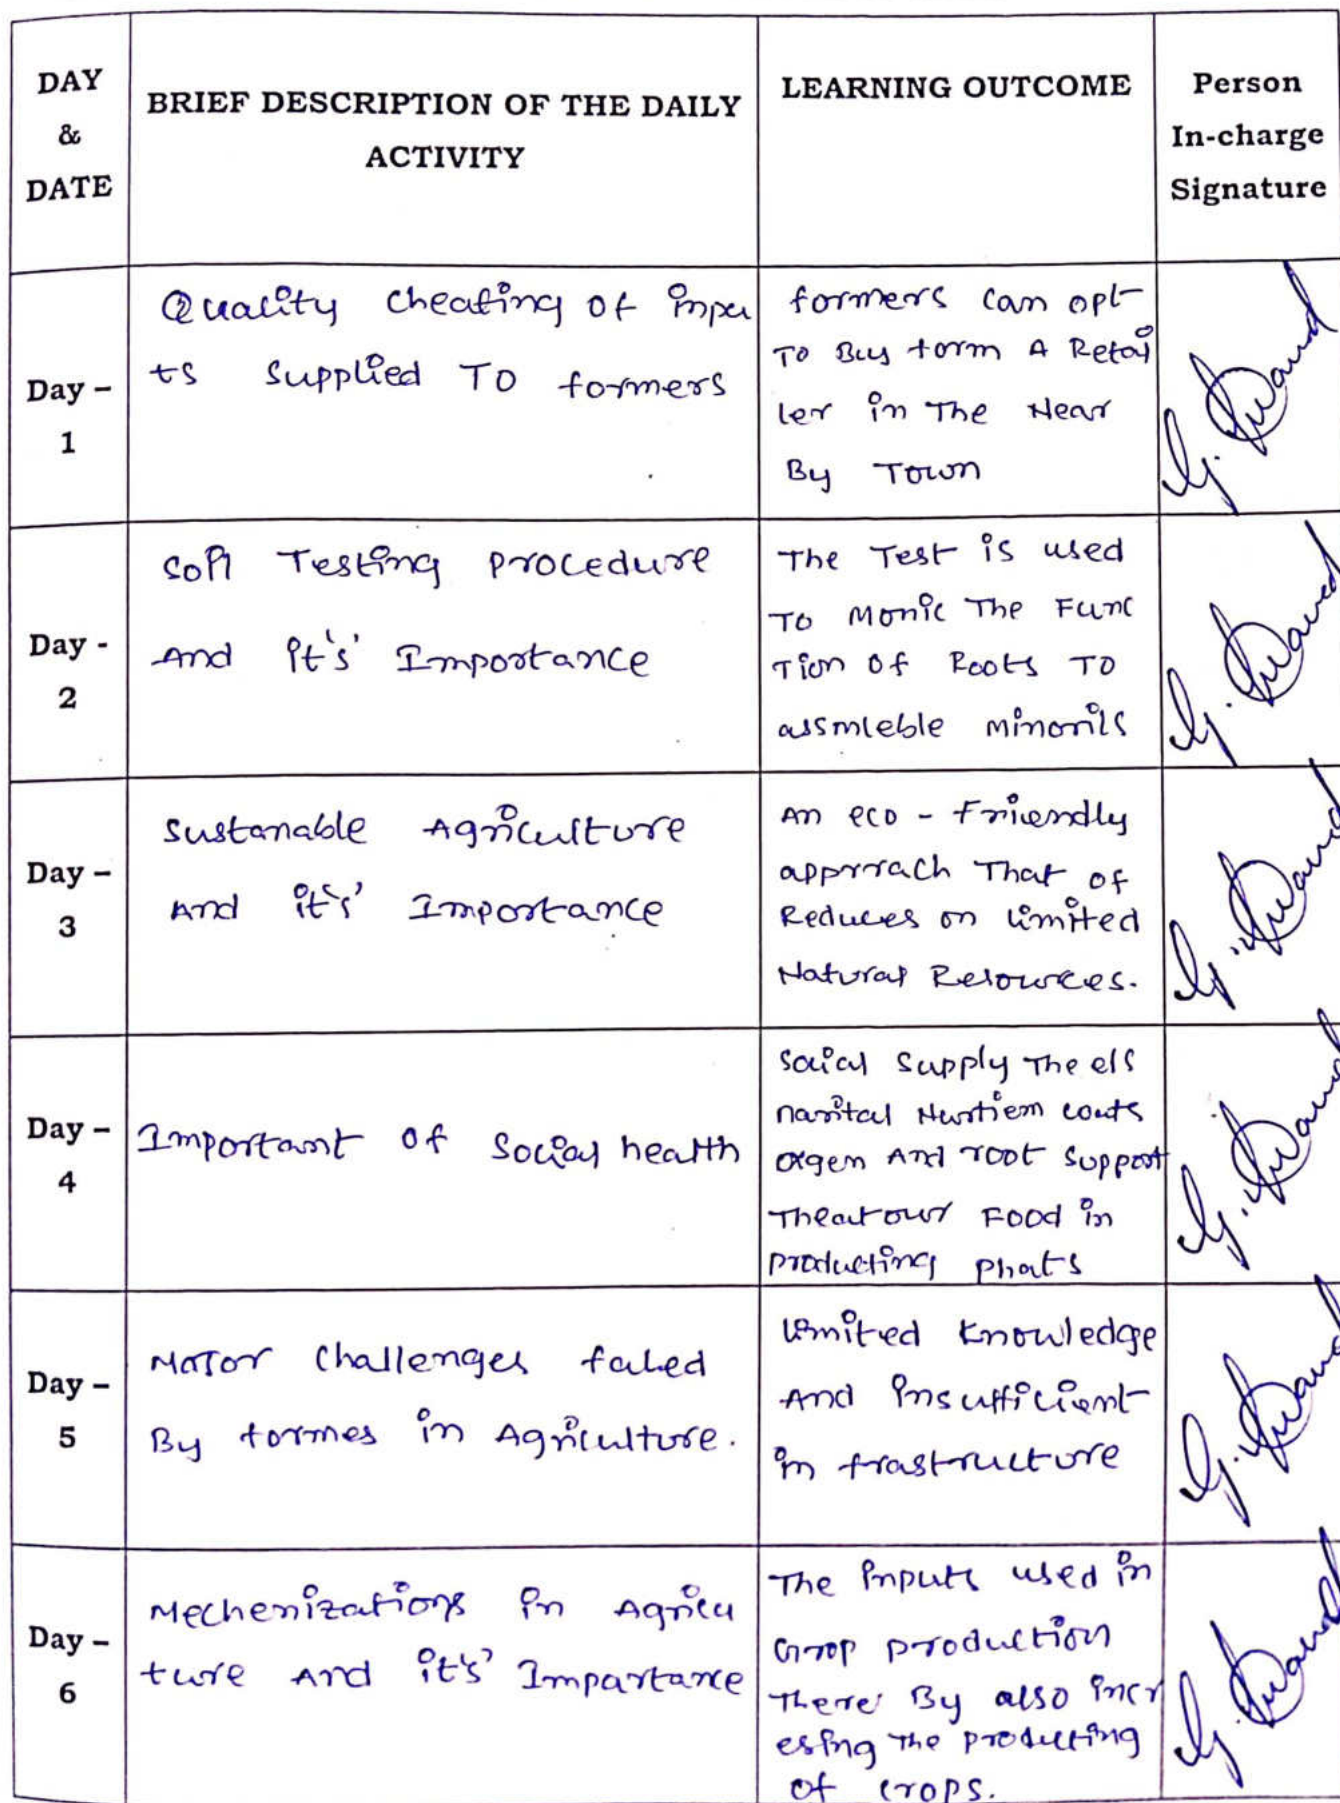 DAY & DATE
BRIEF DESCRIPTION OF THE DAILY ACTIVITY
LEARNING OUTCOME
Person In-charge Signature
Day – 1
Quality cheating of inpu
ts supplied To formers
formers can opt
To Buy form A Retai
ler in The Near
By Town
Day - 2
Soil Testing procedure
And it's' Importance
The Test is used
To Monic The Func
Tion Of Roots TO
assmleble minorils
Day – 3
Sustanable Agriculture
And it's' Importance
An eco - Friendly
apprrach That of
Reduces on limited
Natural Resources.
Day – 4
Important Of Social health
Social Supply The
And root Support
Food in
producting
Day – 5
Major Challenges faked
By formes in Agriculture.
limited Knowledge
And insufficient
in frastructure
Day – 6
Mechenizations in Agricu
ture And it's' Impartance
The inputs used in
Crop production
There By also incr
esing The producting
of crops.